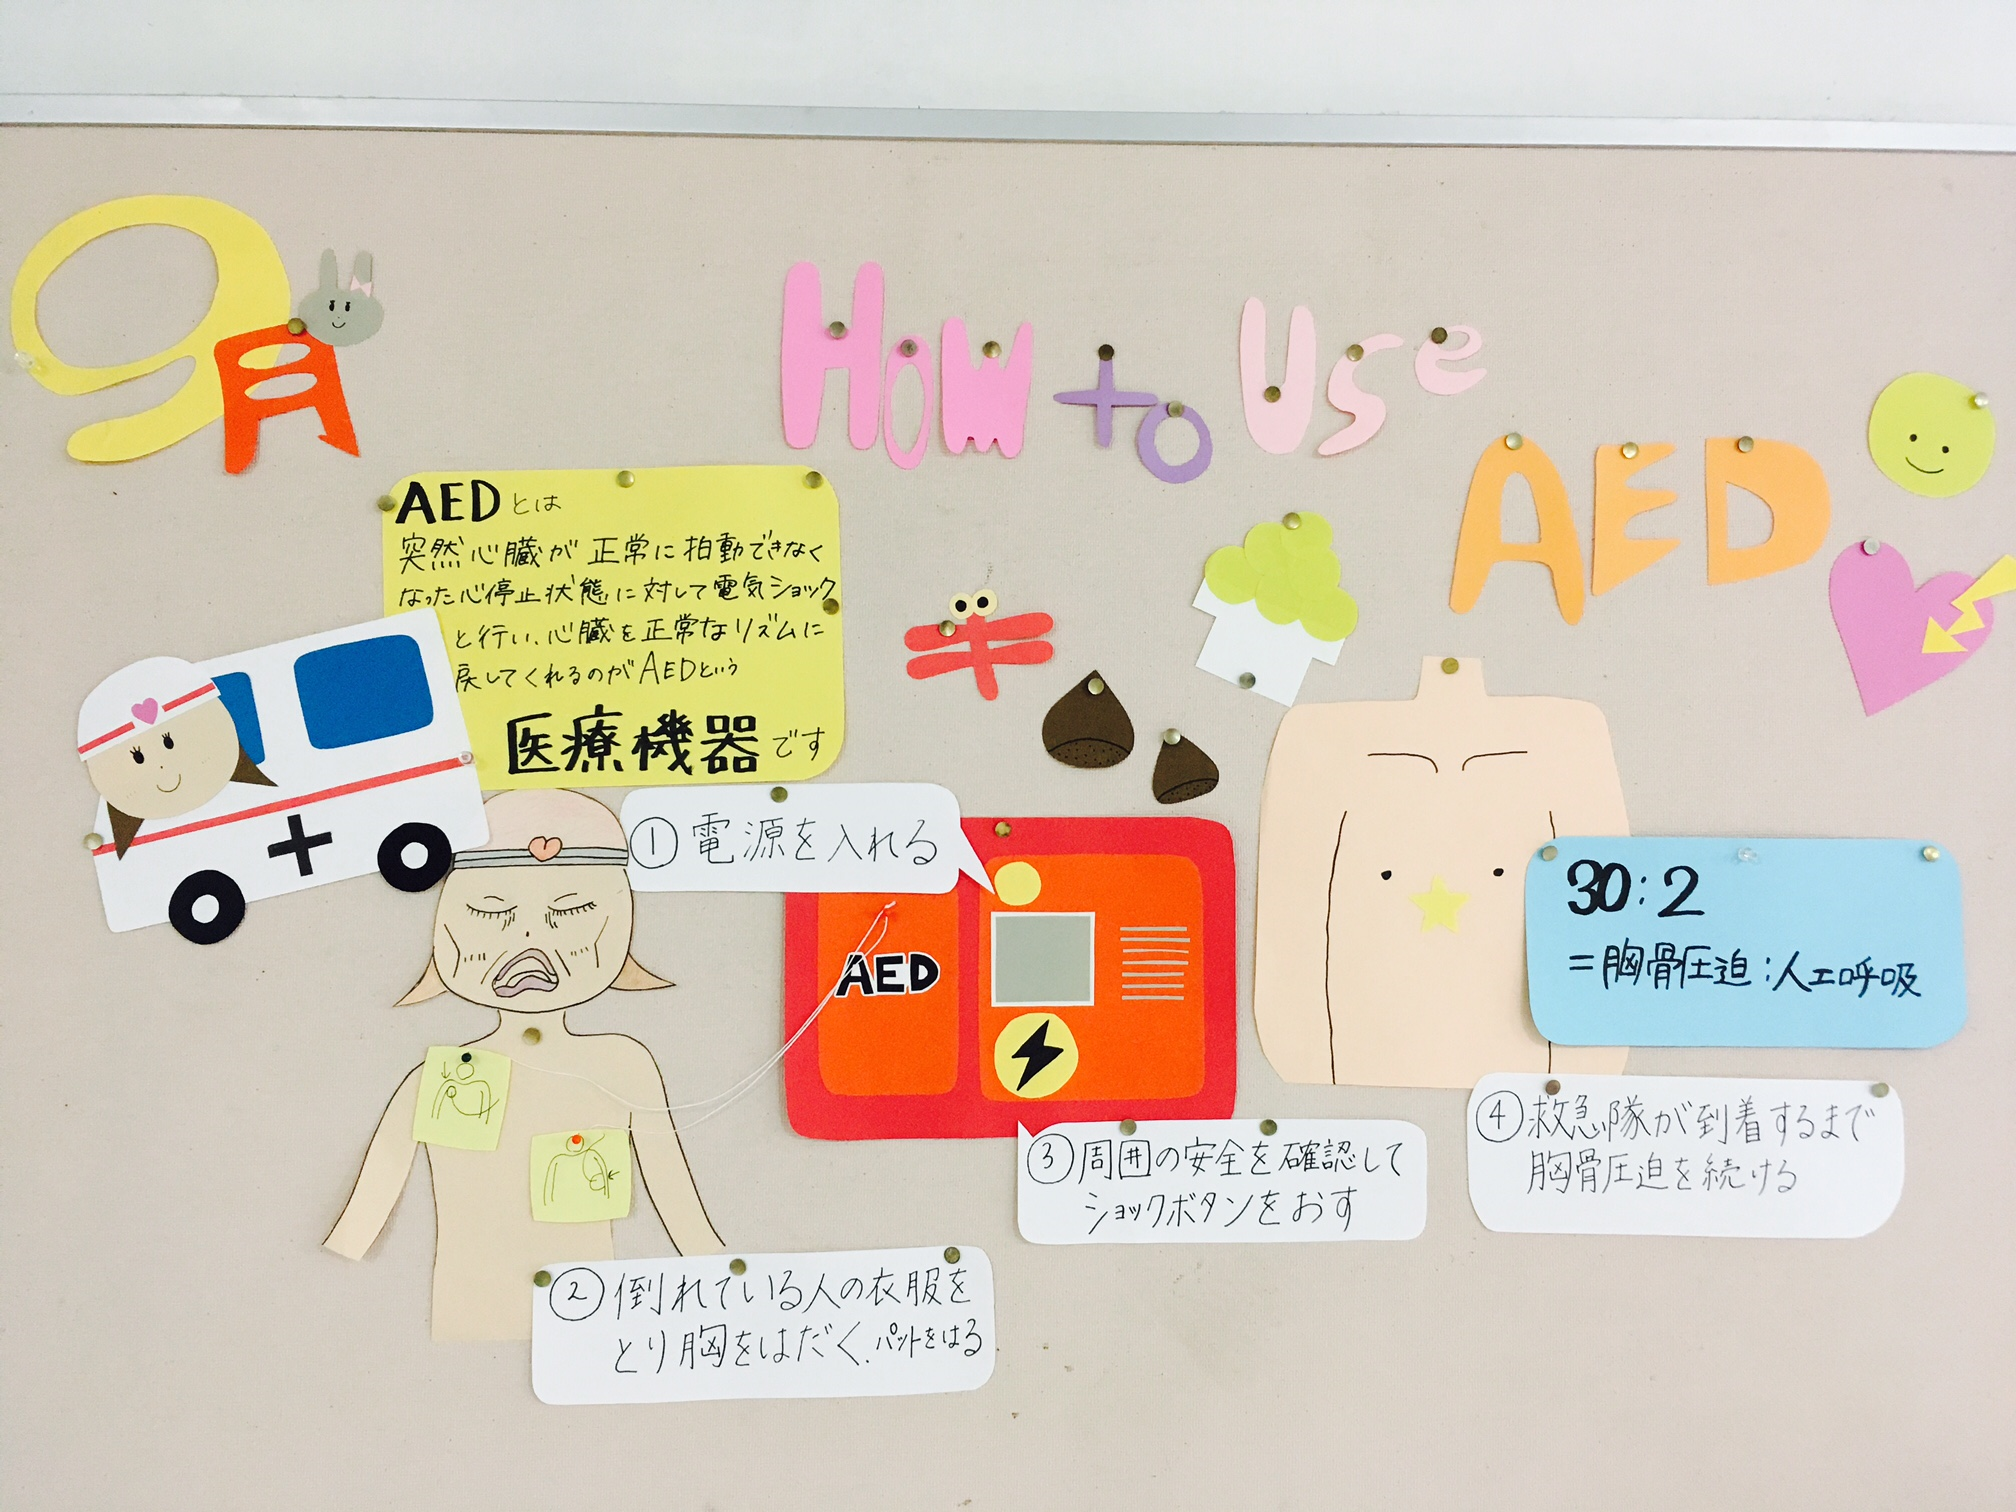 9月
How to Use
AED
AEDとは
突然心臓が正常に拍動できなく
なった心停止状態に対して電気ショック
と行い、心臓を正常なリズムに
戻してくれるのがAEDという
医療機器です
①電源を入れる
AED
30:2
=胸骨圧迫:人工呼吸
④救急隊が到着するまで
胸骨圧迫を続ける
③周囲の安全を確認して
ショックボタンをおす
②倒れている人の衣服を
とり胸をはだく、パットをはる